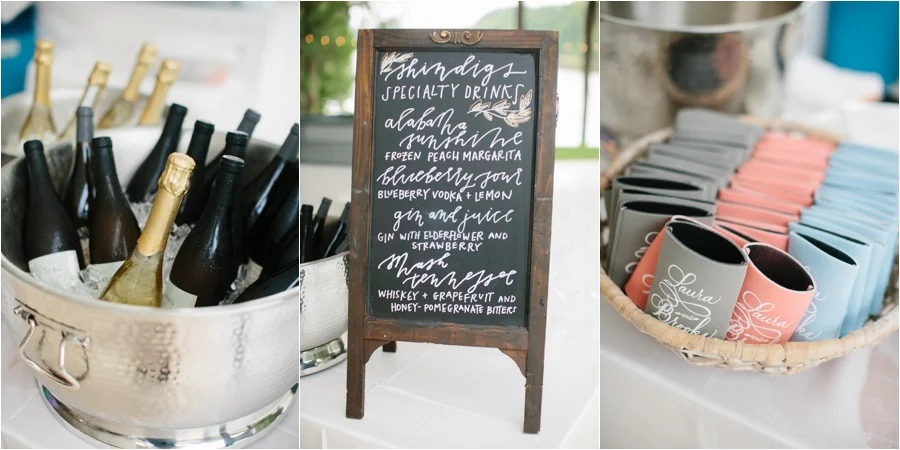 shindigs
SPECIALTY DRINKS
alabama
sunshine
FROZEN PEACH MARGARITA
blueberry sour
BLUEBERRY VODKA + LEMON
gin and juice
GIN WITH ELDERFLOWER AND
STRAWBERRY
Smash
tennessee
WHISKEY + GRAPEFRUIT AND
HONEY-POMEGRANATE BITTERS
Laura
and
Brooks
Laura
and